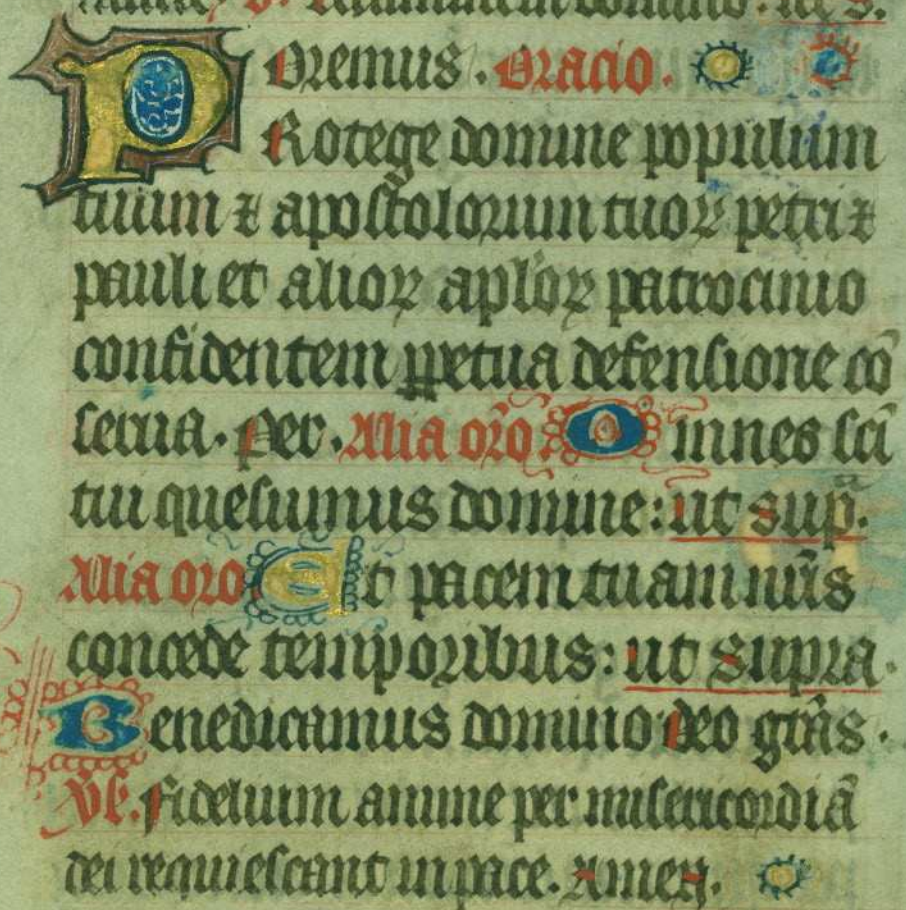 domino. ut s.
Oremus. Oracio.
PRotege domine populum
tuum ⁊ apostolorum tuoꝝ petri ⁊
pauli et alioꝝ apl'oꝝ patrocinio
confidentem ꝑpetua defensione cō
serua. Per. Alia orō Omnes sci̅
tui quesumus domine: ut supᷓ.
Alia oro. Et pacem tuam nr̄is
concede temporibus: ut supra.
Benedicamus domino deo grās.
Vs̄. Fidelium anime per misericordiā
dei requiescant in pace. Amen.